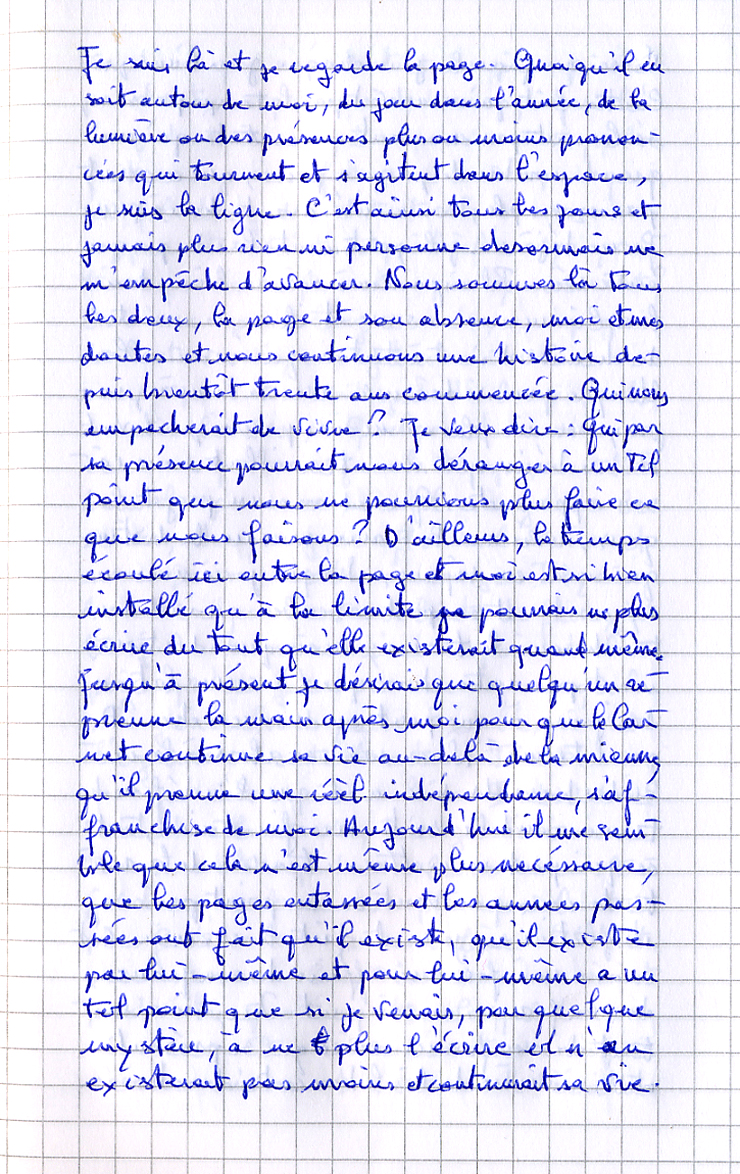 Je suis là et je regarde la page. Quoiqu'il en
soit autour de moi, du jour dans l'année, de la
lumière ou des présences plus ou moins pronon-
cées qui tournent et s'agitent dans l'espace,
je suis la ligne. C'est ainsi tous les jours et
jamais plus rien ni personne desormais ne
m'empêche d'avancer. Nous sommes là tous
les deux, la page et son absence, moi et mes
doutes et nous continuons une histoire de-
puis bientôt trente ans commencée. Qui nous
empecherait de vivre ? Je veux dire : qui par
sa présence pourrait nous déranger à un tel
point que nous ne pourrions plus faire ce
que nous faisons ? D'ailleurs, le temps
écoulé ici entre la page et moi est si bien
installé qu'à la limite je pourrais ne plus
écrire du tout qu'elle existerait quand même.
Jusqu'à présent je désirais que quelqu'un re-
prenne la main après moi pour que le Car-
net continue sa vie au-delà de la mienne,
qu'il prenne une réèl indépendance, s'af-
franchisse de moi. Aujourd'hui il me sem-
ble que cela n'est même plus necéssaire,
que les pages entassées et les années pas-
sées ont fait qu'il existe, qu'il existe
par lui-même et pour lui-même a un
tel point que si je venais, par quelque
mystère, à ne plus l'écrire il n'en
existerait pas moins et continuerait sa vie.